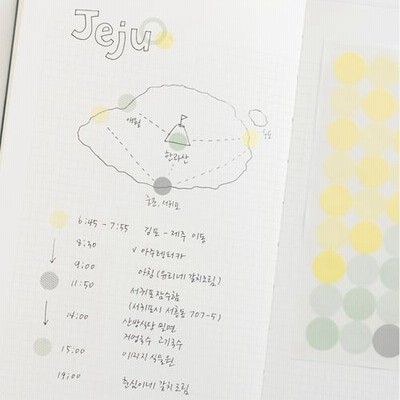 Jeju
애월
한라산
우도
중문, 서귀포
6:45 - 7:55 김포 - 제주 이동
8:30 ∨ 아수렌터카
9:00 아침 (유리네 갈치조림)
11:50 서귀포 잠수함
(서귀포시 서홍동 707-5)
14:00 산방식당 밀면
고기국수
15:00 식물원
19:00 춘심이네 갈치조림